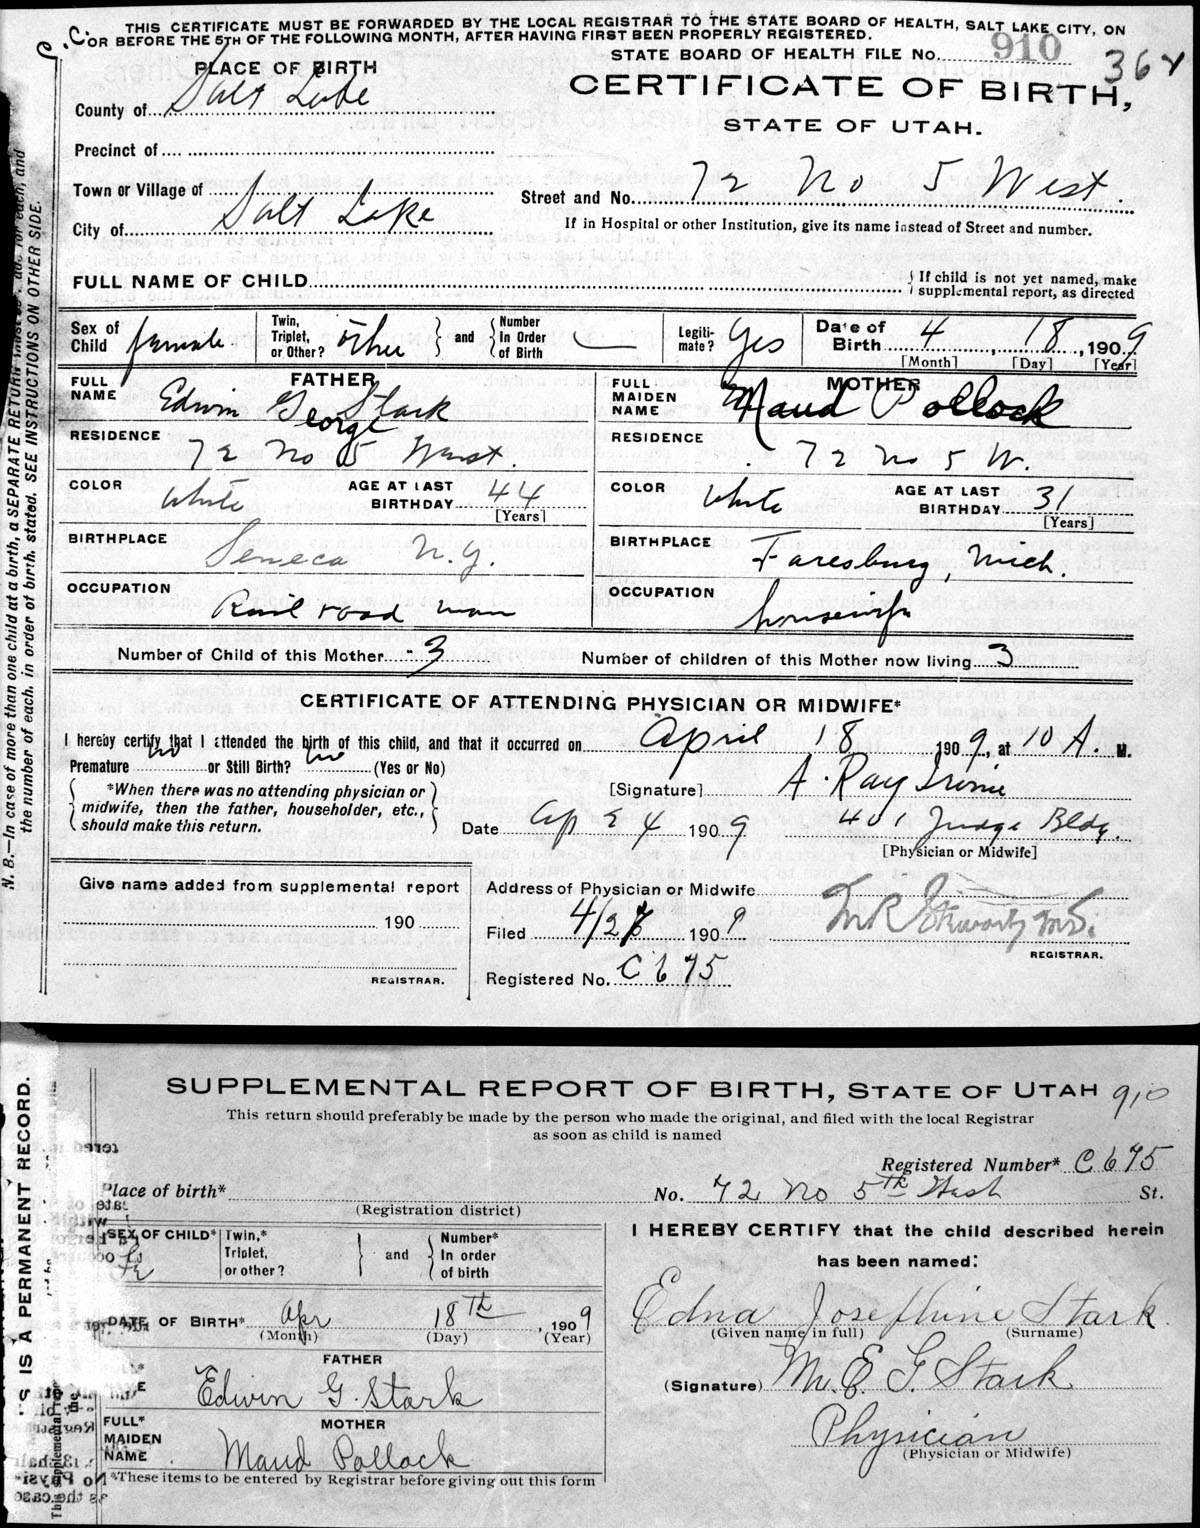 C.C.
THIS CERTIFICATE MUST BE FORWARDED BY THE LOCAL REGISTRAR TO THE STATE BOARD OF HEALTH, SALT LAKE CITY, ON
OR BEFORE THE 5TH OF THE FOLLOWING MONTH, AFTER HAVING FIRST BEEN PROPERLY REGISTERED.
STATE BOARD OF HEALTH FILE No. 910
36
PLACE OF BIRTH
CERTIFICATE OF BIRTH,
STATE OF UTAH.
County of Salt Lake
Precinct of
Town or Village of
Street and No. 72 No 5 West.
City of Salt Lake
If in Hospital or other Institution, give its name instead of Street and number.
FULL NAME OF CHILD
If child is not yet named, make
supplemental report, as directed
Sex of Child female
Twin, Triplet, or Other? other
and
Number In Order of Birth —
Legitimate? Yes
Date of Birth 4 18, 1909
[Month] [Day] [Year]
FATHER
FULL NAME Edwin George Stark
MOTHER
FULL MAIDEN NAME Maud Pollock
RESIDENCE 72 No 5 West.
RESIDENCE 72 No 5 W.
COLOR White
AGE AT LAST BIRTHDAY 44
[Years]
COLOR White
AGE AT LAST BIRTHDAY 31
[Years]
BIRTHPLACE Seneca N.Y.
BIRTHPLACE Faresburg, Mich.
OCCUPATION Rail road man
OCCUPATION housewife
Number of Child of this Mother 3
Number of children of this Mother now living 3
CERTIFICATE OF ATTENDING PHYSICIAN OR MIDWIFE*
I hereby certify that I attended the birth of this child, and that it occurred on April 18 1909, at 10 A. M.
Premature no or Still Birth? no (Yes or No)
*When there was no attending physician or
midwife, then the father, householder, etc.,
should make this return.
[Signature] A. Ray Irvine
Date Ap 24 1909 401 Judge Bldg.
[Physician or Midwife]
Give name added from supplemental report
190
REGISTRAR.
Address of Physician or Midwife
Filed 4/28 1909
REGISTRAR.
Registered No. C675
N. B.—In case of more than one child at a birth, a SEPARATE RETURN must be made for each, and
the number of each, in order of birth, stated. SEE INSTRUCTIONS ON OTHER SIDE.
SUPPLEMENTAL REPORT OF BIRTH, STATE OF UTAH 910
This return should preferably be made by the person who made the original, and filed with the local Registrar
as soon as child is named
Registered Number* C675
Place of birth*
(Registration district)
No. 72 No 5th West St.
SEX OF CHILD* Fe
Twin,* Triplet, or other?
and
Number* In order of birth
I HEREBY CERTIFY that the child described herein
has been named:
Edna Josephine Stark
(Given name in full) (Surname)
DATE OF BIRTH* Apr 18th, 1909
(Month) (Day) (Year)
FATHER
Edwin G. Stark
(Signature) M. E. G. Stark
Physician
(Physician or Midwife)
FULL* MAIDEN NAME
MOTHER
Maud Pollock
*These items to be entered by Registrar before giving out this form
IS A PERMANENT RECORD.